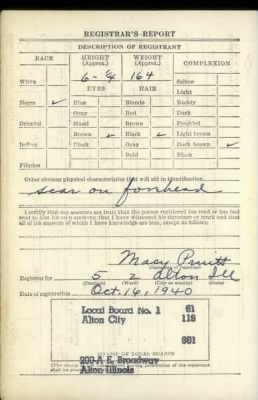 REGISTRAR'S REPORT
DESCRIPTION OF REGISTRANT
RACE HEIGHT (Approx.) WEIGHT (Approx.) COMPLEXION
6- 164
White Sallow
EYES HAIR Light
Negro ✓ Blue Blonde Ruddy
Gray Red Dark
Oriental Hazel Brown Freckled
Brown ✓ Black ✓ Light brown
Indian Black Gray Dark brown ✓
Bald Black
Filipino
Other obvious physical characteristics that will aid in identification
scar on forehead
I certify that my answers are true; that the person registered has read or has had
read to him his own answers; that I have witnessed his signature or mark and that
all of his answers of which I have knowledge are true, except as follows:
Macy Pruitt
(Signature of registrar)
Registrar for 5 2 Alton Ill
(Precinct) (Ward) (City or county) (State)
Date of registration Oct. 16, 1940
Local Board No. 1 61
Alton City 119
001
STAMP OF LOCAL BOARD
200-A E. Broadway
Alton Illinois